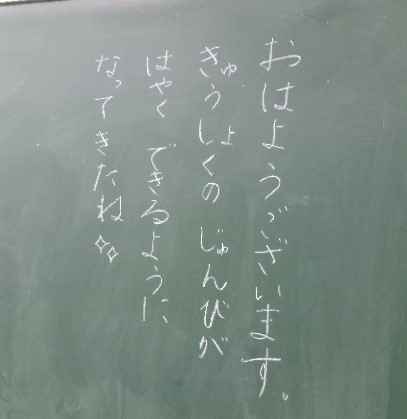 おはようございます。
きゅうしょくの じゅんびが
はやく できるように
なってきたね